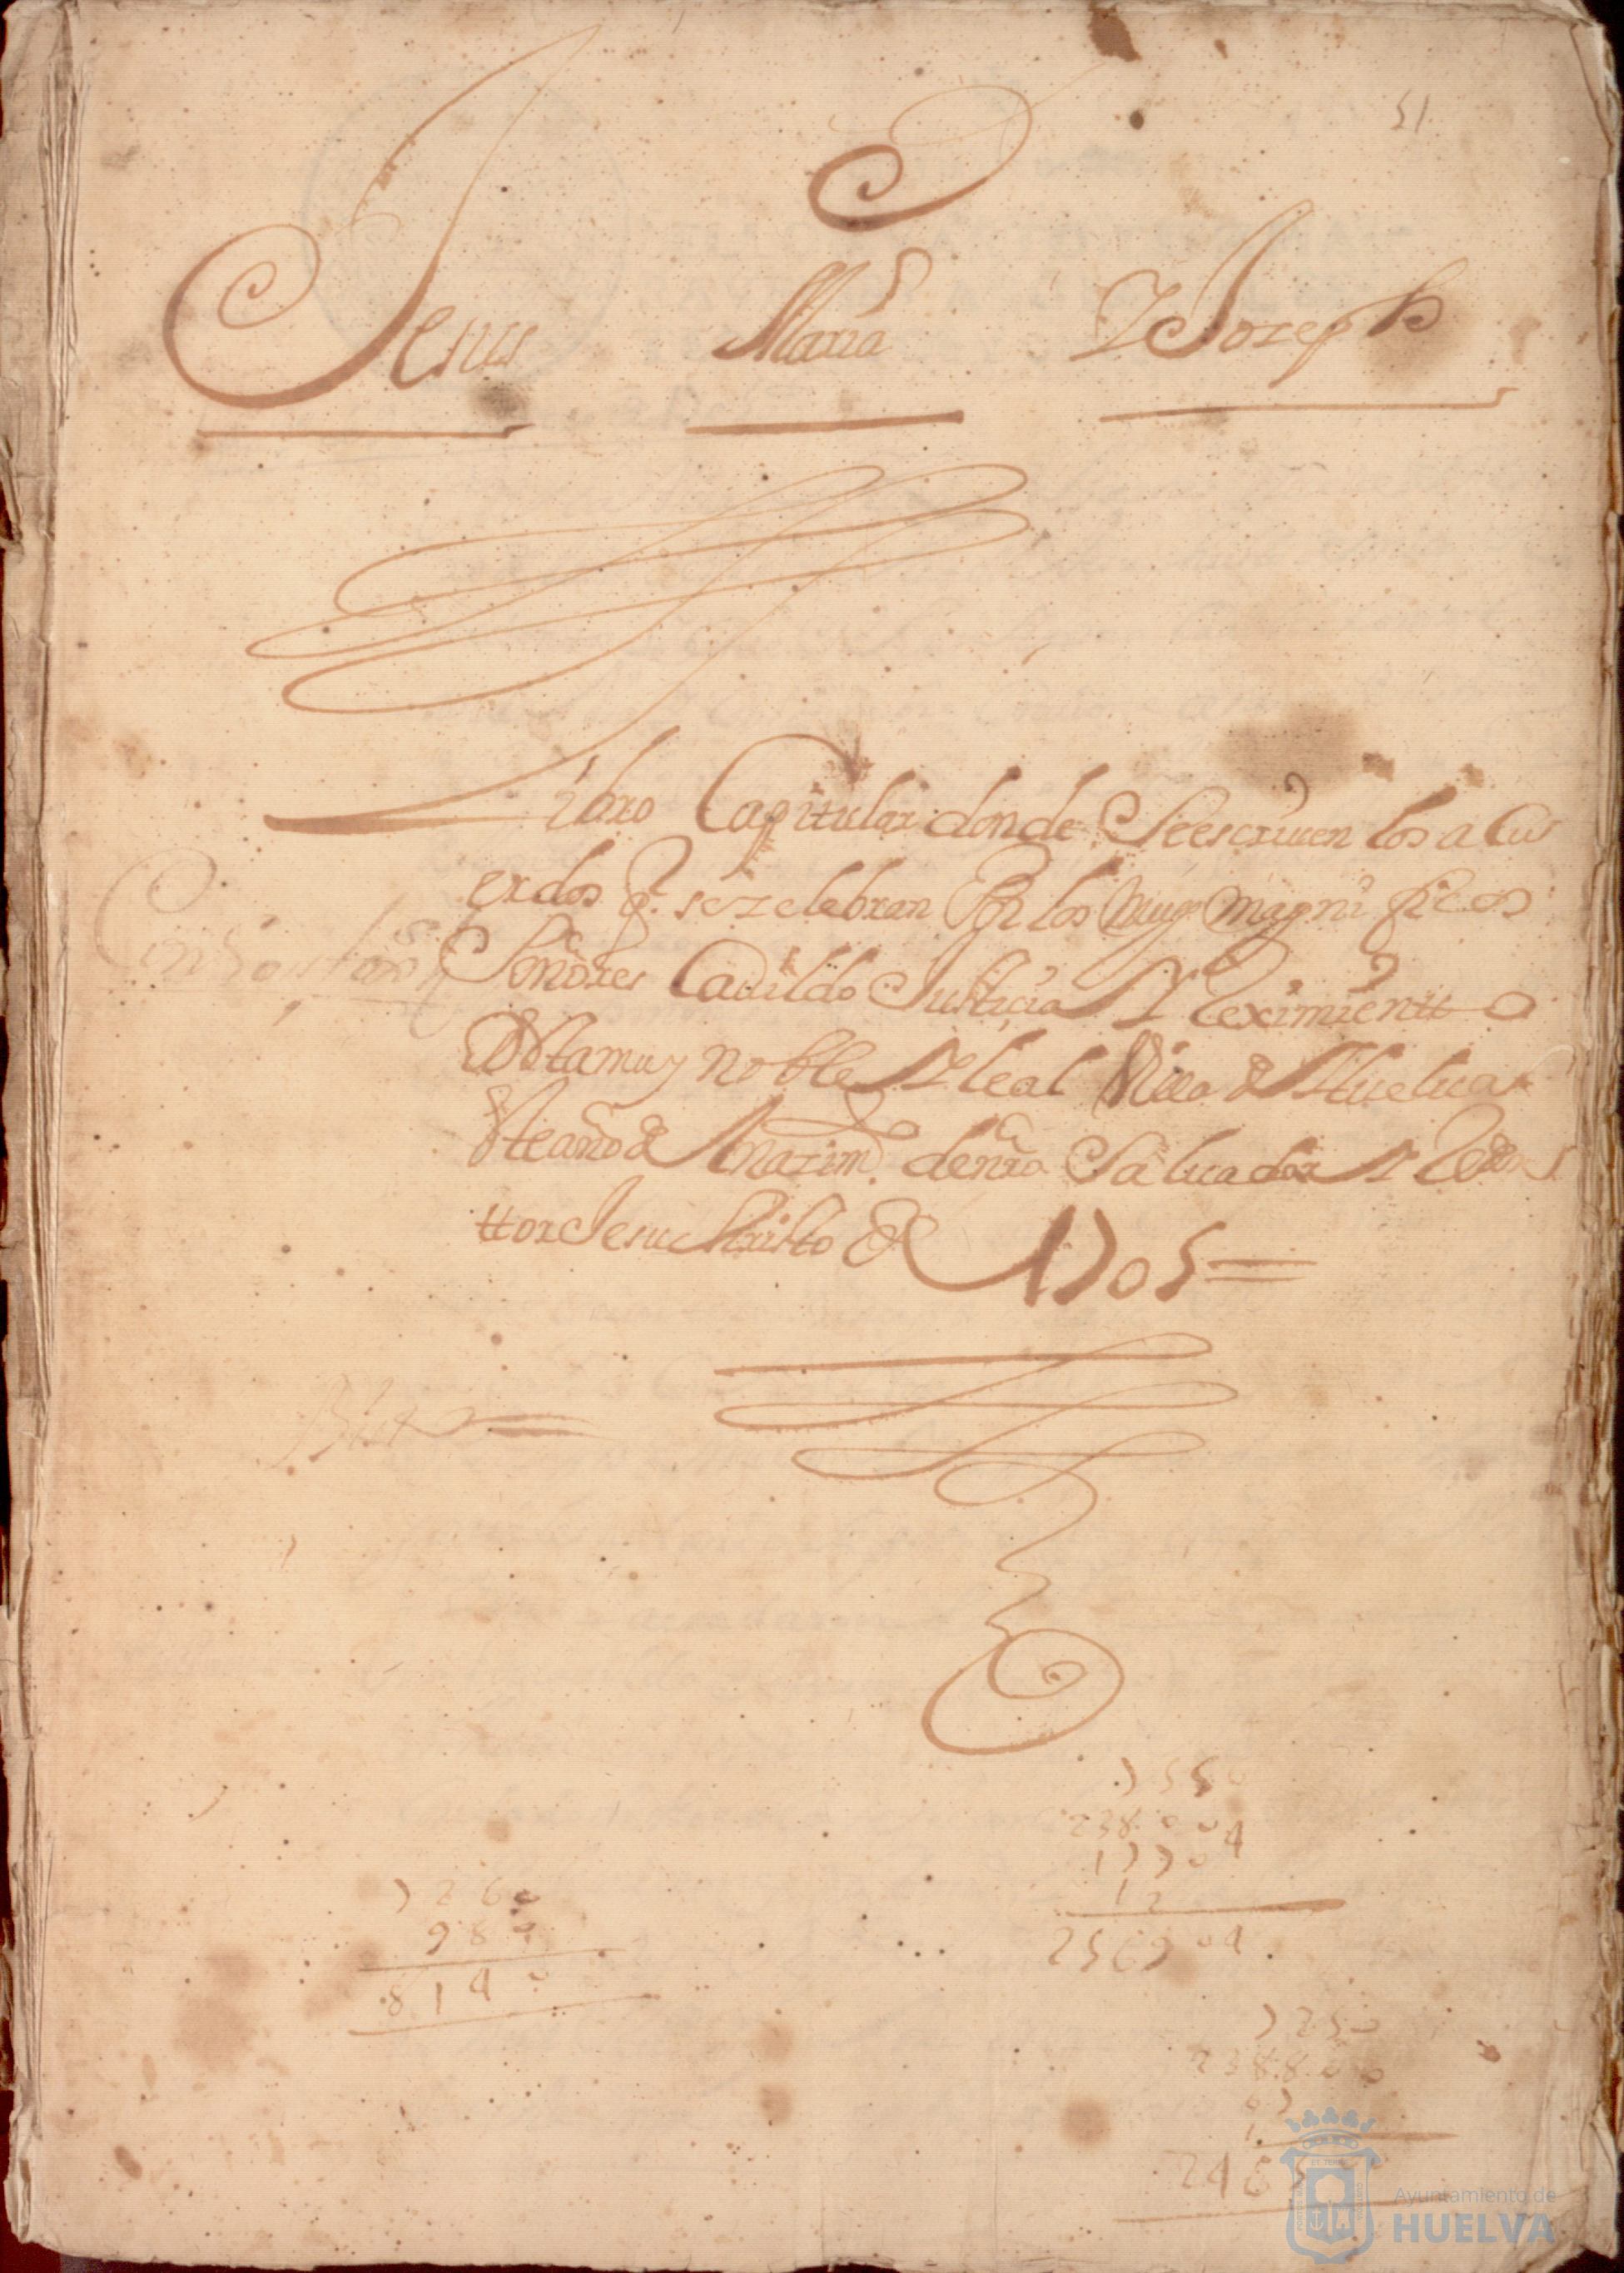 51
Jesus Maria Y Joseph
Libro Capitular donde Seescriuen los acu
erdos q. sezelebran Por los Muy magnificos
Señores Cauildo Justicia Y Reximientto
Desta muy noble Y leal Villa de Huelua
este año del Nazim.to denro Saluador Y Redem
ttor Jesu Christo de 1705
7260
980
8140
7550
238004
17904
12
256904
7250
238800
Ayuntamiento de
HUELVA